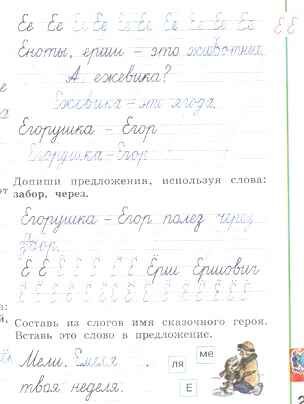 Ее Ее Ее Ее Ее Ее Ее Ее Ее Ё Ё
Еноты, ерши – это животные.
А ежевика?
Ежевика – это ягода.
Егорушка – Егор
Егорушка – Егор
Допиши предложения, используя слова:
забор, через.
Егорушка – Егор полез через
забор.
Ё Ё Ё Ё Ё Ё Ё Ёрш Ершович
Ё Ё Ё Ё Ё Ё Ё Ё Ё Ё Ё Ё Ё
Составь из слогов имя сказочного героя.
Вставь это слово в предложение.
Мели, Емеля,
твоя неделя.
ля
ме
Е